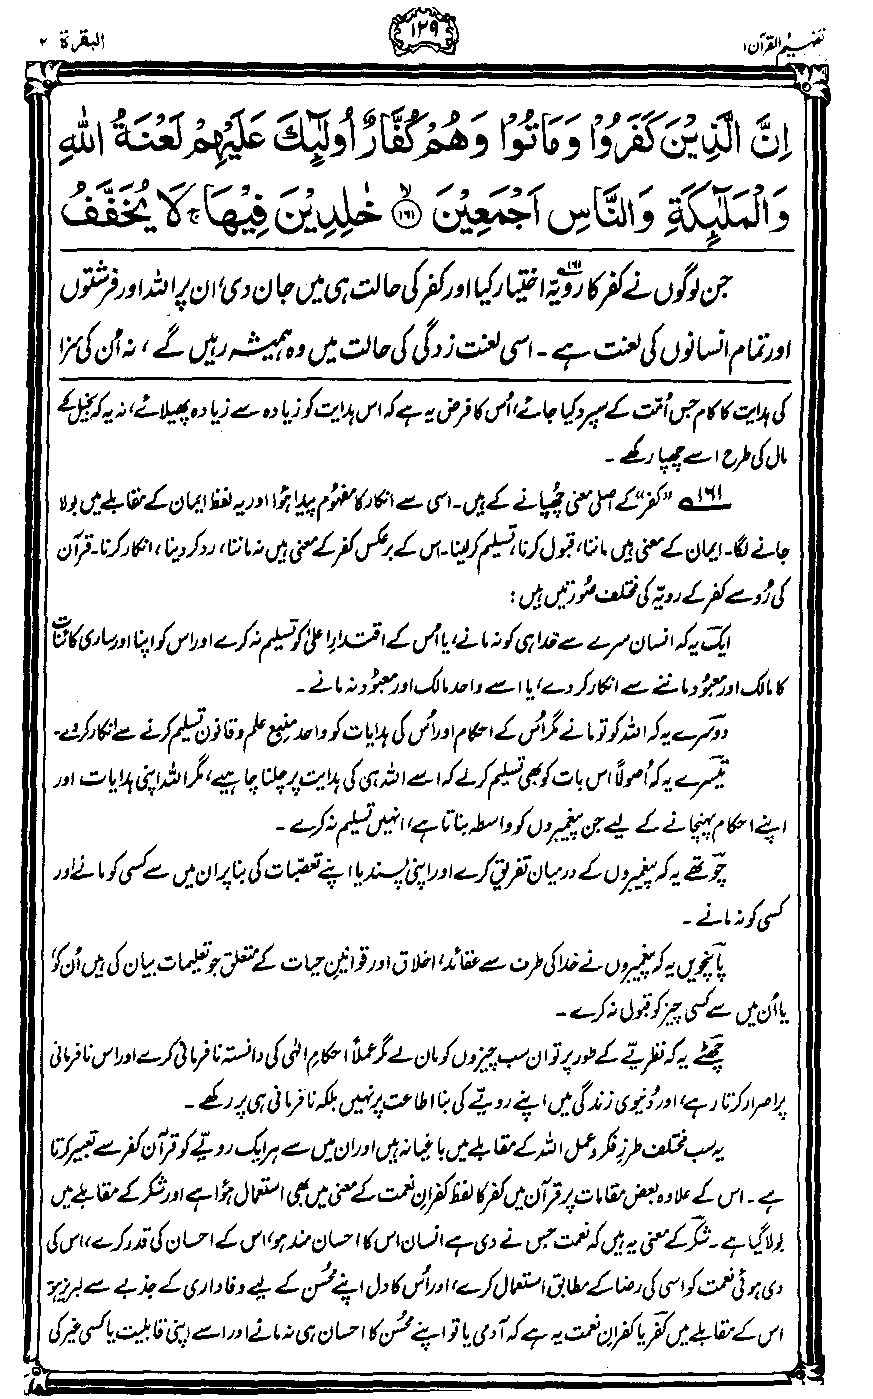 تفہیم القرآن ۱
۱۲۹
البقرۃ ۲
اِنَّ الَّذِیْنَ کَفَرُوْا وَمَاتُوْا وَهُمْ کُفَّارٌ اُولٰٓئِکَ عَلَیْهِمْ لَعْنَةُ اللّٰهِ
وَالْمَلٰٓئِکَةِ وَالنَّاسِ اَجْمَعِیْنَ ۙ۱۶۱ خٰلِدِیْنَ فِیْهَا ۚ لَا یُخَفَّفُ
جن لوگوں نے کفر کا رویّہ۱۶۱ اختیار کیا اور کفر کی حالت ہی میں جان دی، ان پر اللہ اور فرشتوں
اور تمام انسانوں کی لعنت ہے۔ اسی لعنت زدگی کی حالت میں وہ ہمیشہ رہیں گے، نہ اُن کی سزا
کی ہدایت کا کام جس اُمّت کے سپرد کیا جائے، اُس کا فرض یہ ہے کہ اس ہدایت کو زیادہ سے زیادہ پھیلائے، نہ یہ کہ بخیل کے
مال کی طرح اسے چھپا رکھے۔
۱۶۱ "کفر" کے اصلی معنی چھپانے کے ہیں۔ اسی سے انکار کا مفہوم پیدا ہُوا اور یہ لفظ ایمان کے مقابلے میں بولا
جانے لگا۔ ایمان کے معنی ہیں ماننا، قبول کرنا، تسلیم کرلینا۔ اس کے برعکس کفر کے معنی ہیں نہ ماننا، رد کر دینا، انکار کرنا۔ قرآن
کی رُو سے کفر کے رویّہ کی مختلف صُورتیں ہیں:
ایک یہ کہ انسان سرے سے خدا ہی کو نہ مانے، یا اُس کے اقتدارِ اعلیٰ کو تسلیم نہ کرے اور اس کو اپنا اور ساری کائنات
کا مالک اور معبُود ماننے سے انکار کر دے، یا اسے واحد مالک اور معبُود نہ مانے۔
دوسرے یہ کہ اللہ کو تو مانے مگر اُس کے احکام اور اُس کی ہدایات کو واحد منبعِ علم و قانون تسلیم کرنے سے انکار کر دے۔
تیسرے یہ کہ اُصولاً اس بات کو بھی تسلیم کرلے کہ اسے اللہ ہی کی ہدایت پر چلنا چاہیے، مگر اللہ اپنی ہدایات اور
اپنے احکام پہنچانے کے لیے جن پیغمبروں کو واسطہ بناتا ہے، انہیں تسلیم نہ کرے۔
چوتھے یہ کہ پیغمبروں کے درمیان تفریق کرے اور اپنی پسند یا اپنے تعصّبات کی بنا پر ان میں سے کسی کو مانے اور
کسی کو نہ مانے۔
پانچویں یہ کہ پیغمبروں نے خدا کی طرف سے عقائد، اخلاق اور قوانینِ حیات کے متعلق جو تعلیمات بیان کی ہیں اُن کو
یا اُن میں سے کسی چیز کو قبول نہ کرے۔
چھٹے یہ کہ نظریے کے طور پر تو ان سب چیزوں کو مان لے مگر عملاً احکامِ الٰہی کی دانستہ نافرمانی کرے اور اس نافرمانی
پر اصرار کرتا رہے، اور دُنیوی زندگی میں اپنے رویّے کی بنا اطاعت پر نہیں بلکہ نافرمانی ہی پر رکھے۔
یہ سب مختلف طرزِ فکر و عمل اللہ کے مقابلے میں باغیانہ ہیں اور ان میں سے ہر ایک رویّے کو قرآن کفر سے تعبیر کرتا
ہے۔ اس کے علاوہ بعض مقامات پر قرآن میں کفر کا لفظ کفرانِ نعمت کے معنی میں بھی استعمال ہُوا ہے اور شکر کے مقابلے میں
بولا گیا ہے۔ شکر کے معنی یہ ہیں کہ نعمت جس نے دی ہے انسان اس کا احسان مند ہو، اس کے احسان کی قدر کرے، اس کی
دی ہوئی نعمت کو اسی کی رضا کے مطابق استعمال کرے، اور اُس کا دل اپنے محسن کے لیے وفاداری کے جذبے سے لبریز ہو
اس کے مقابلے میں کفر یا کفرانِ نعمت یہ ہے کہ آدمی یا تو اپنے محسُن کا احسان ہی نہ مانے اور اسے اپنی قابلیت یا کسی غیر کی